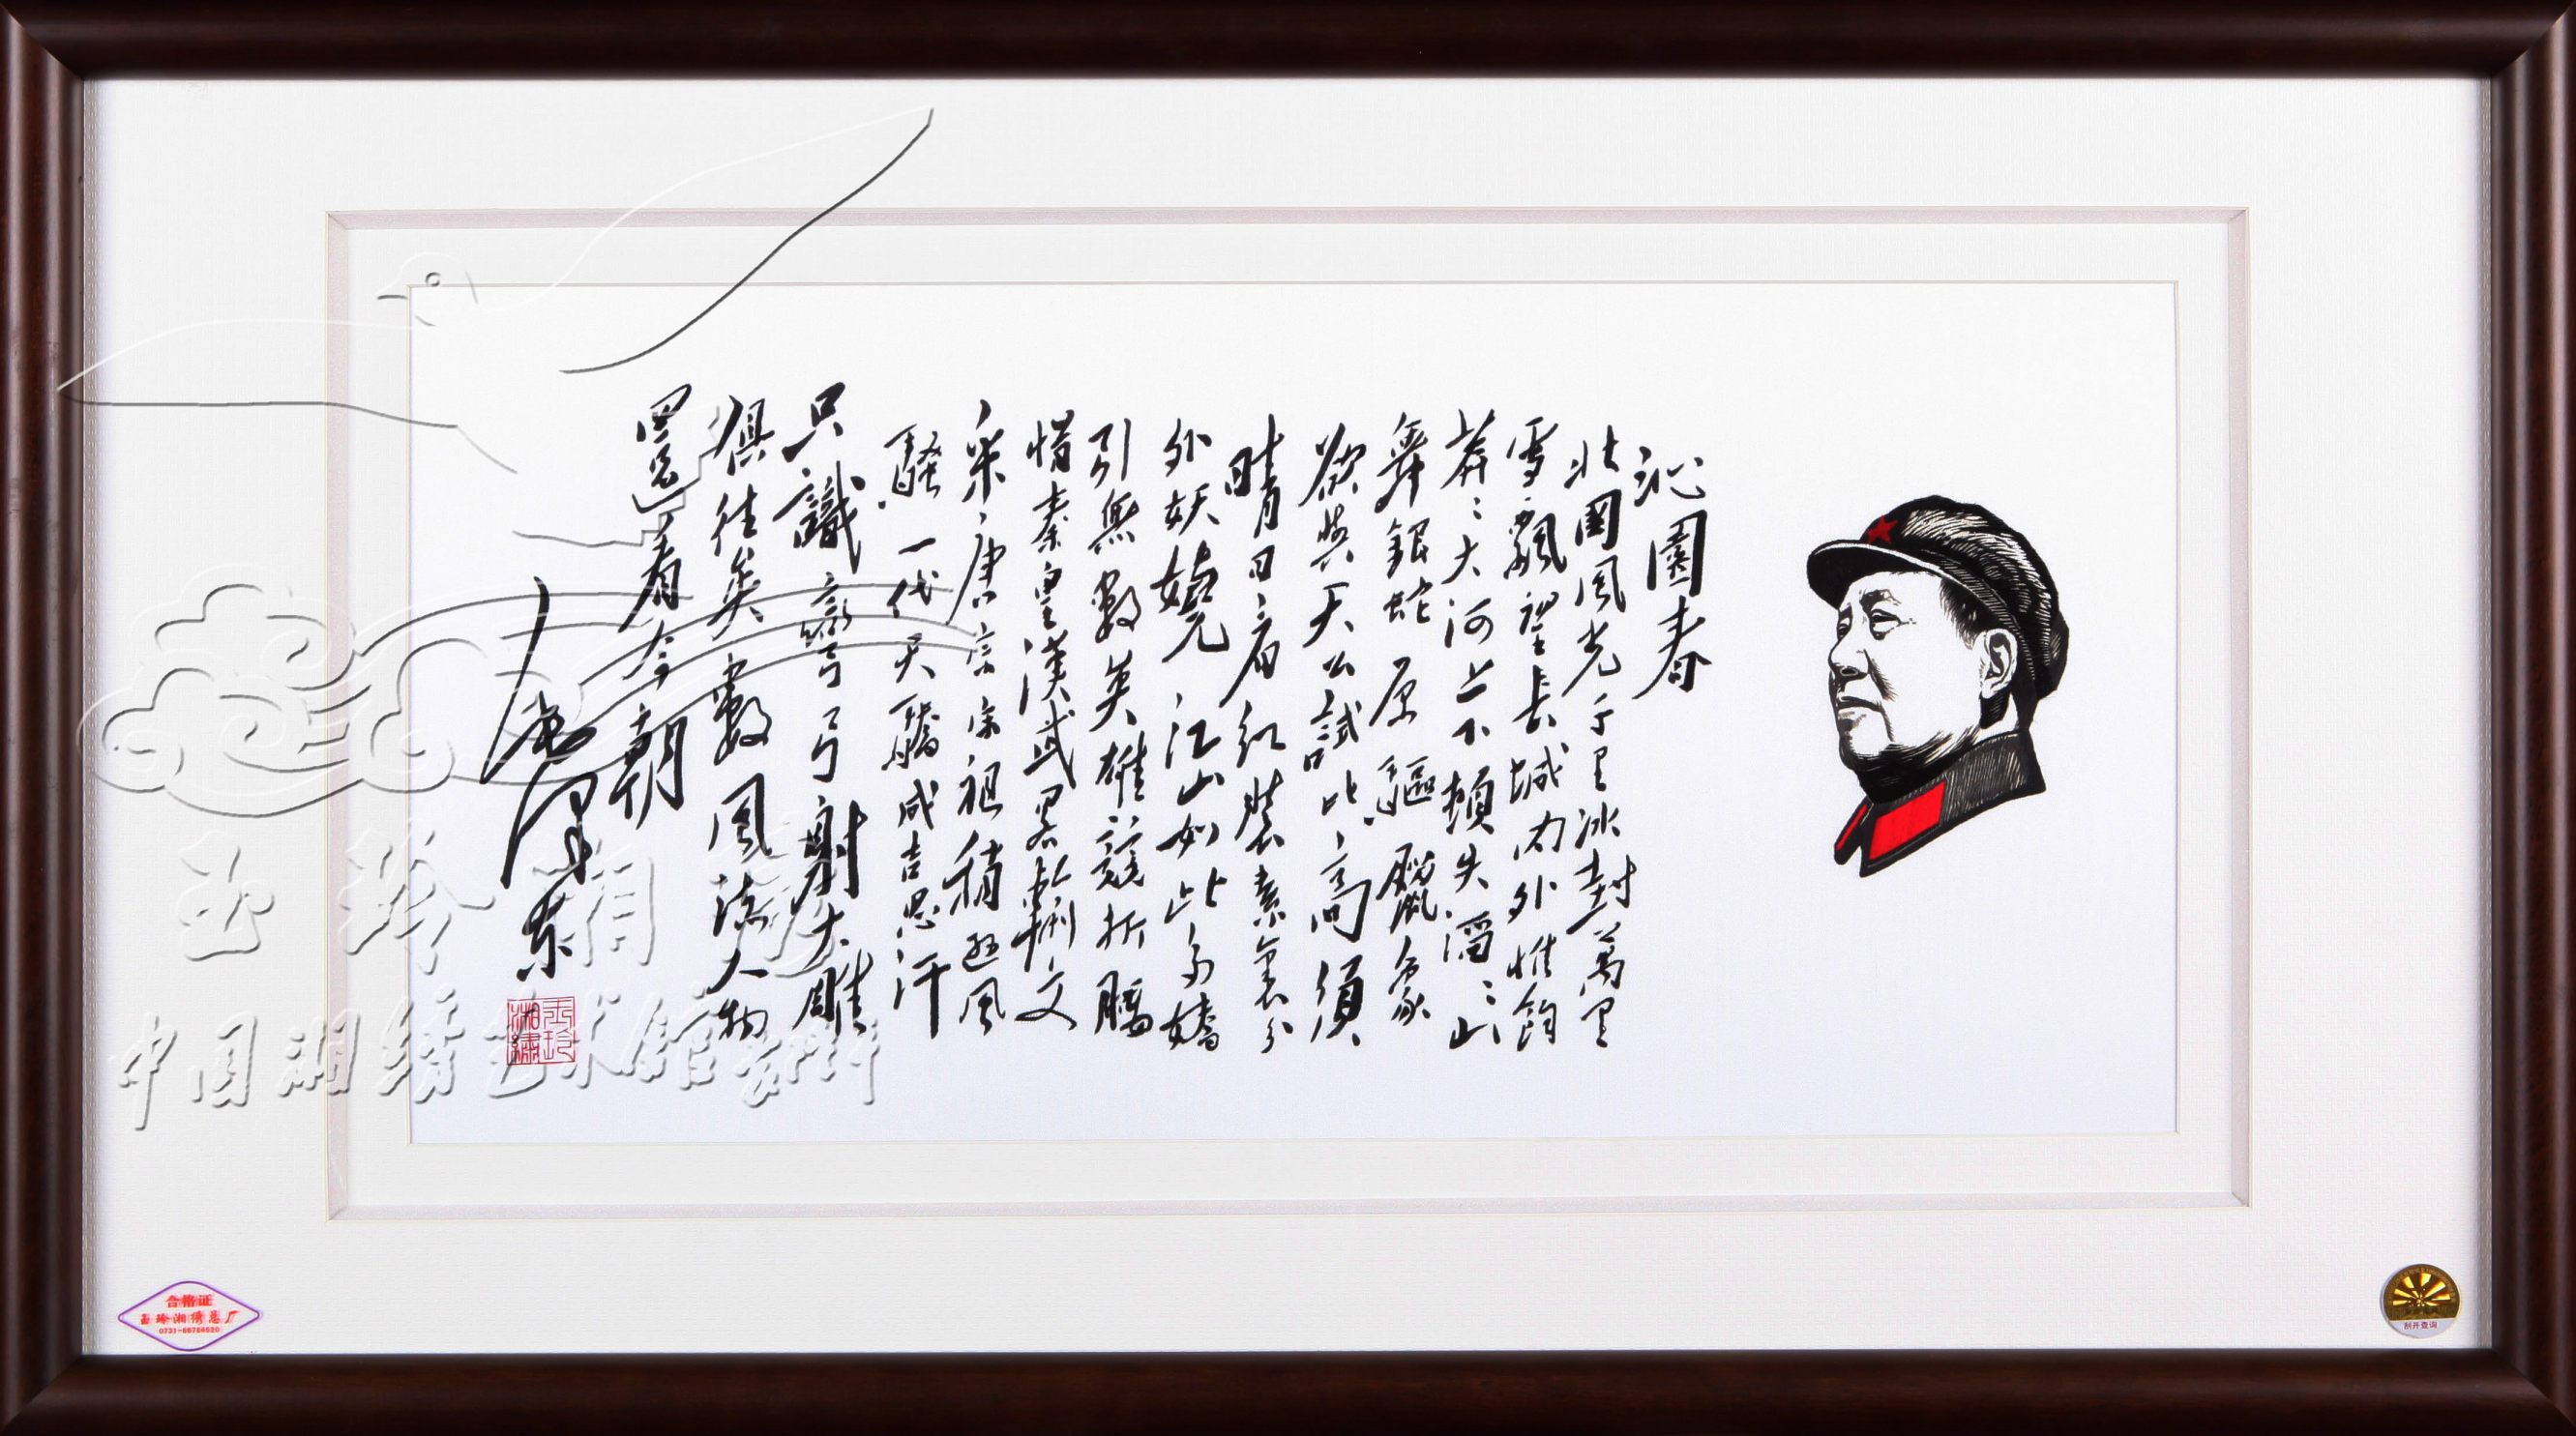 沁園春
北國風光千里冰封萬里
雪飄望長城內外惟餘
莽〻大河上下頓失滔〻山
舞銀蛇原驅臘象
欲與天公試比高須
晴日看紅裝素裹分
外妖嬈江山如此多嬌
引無數英雄競折腰
惜秦皇漢武略輸文
采唐宗宋祖稍遜風
騷一代天驕成吉思汗
只識彎弓射大雕
俱往矣數風流人物
還看今朝
毛澤东
玉玲湘繡
玉玲湘繡
中国湘绣艺术馆
合格证
玉玲湘绣总厂
刮开查询